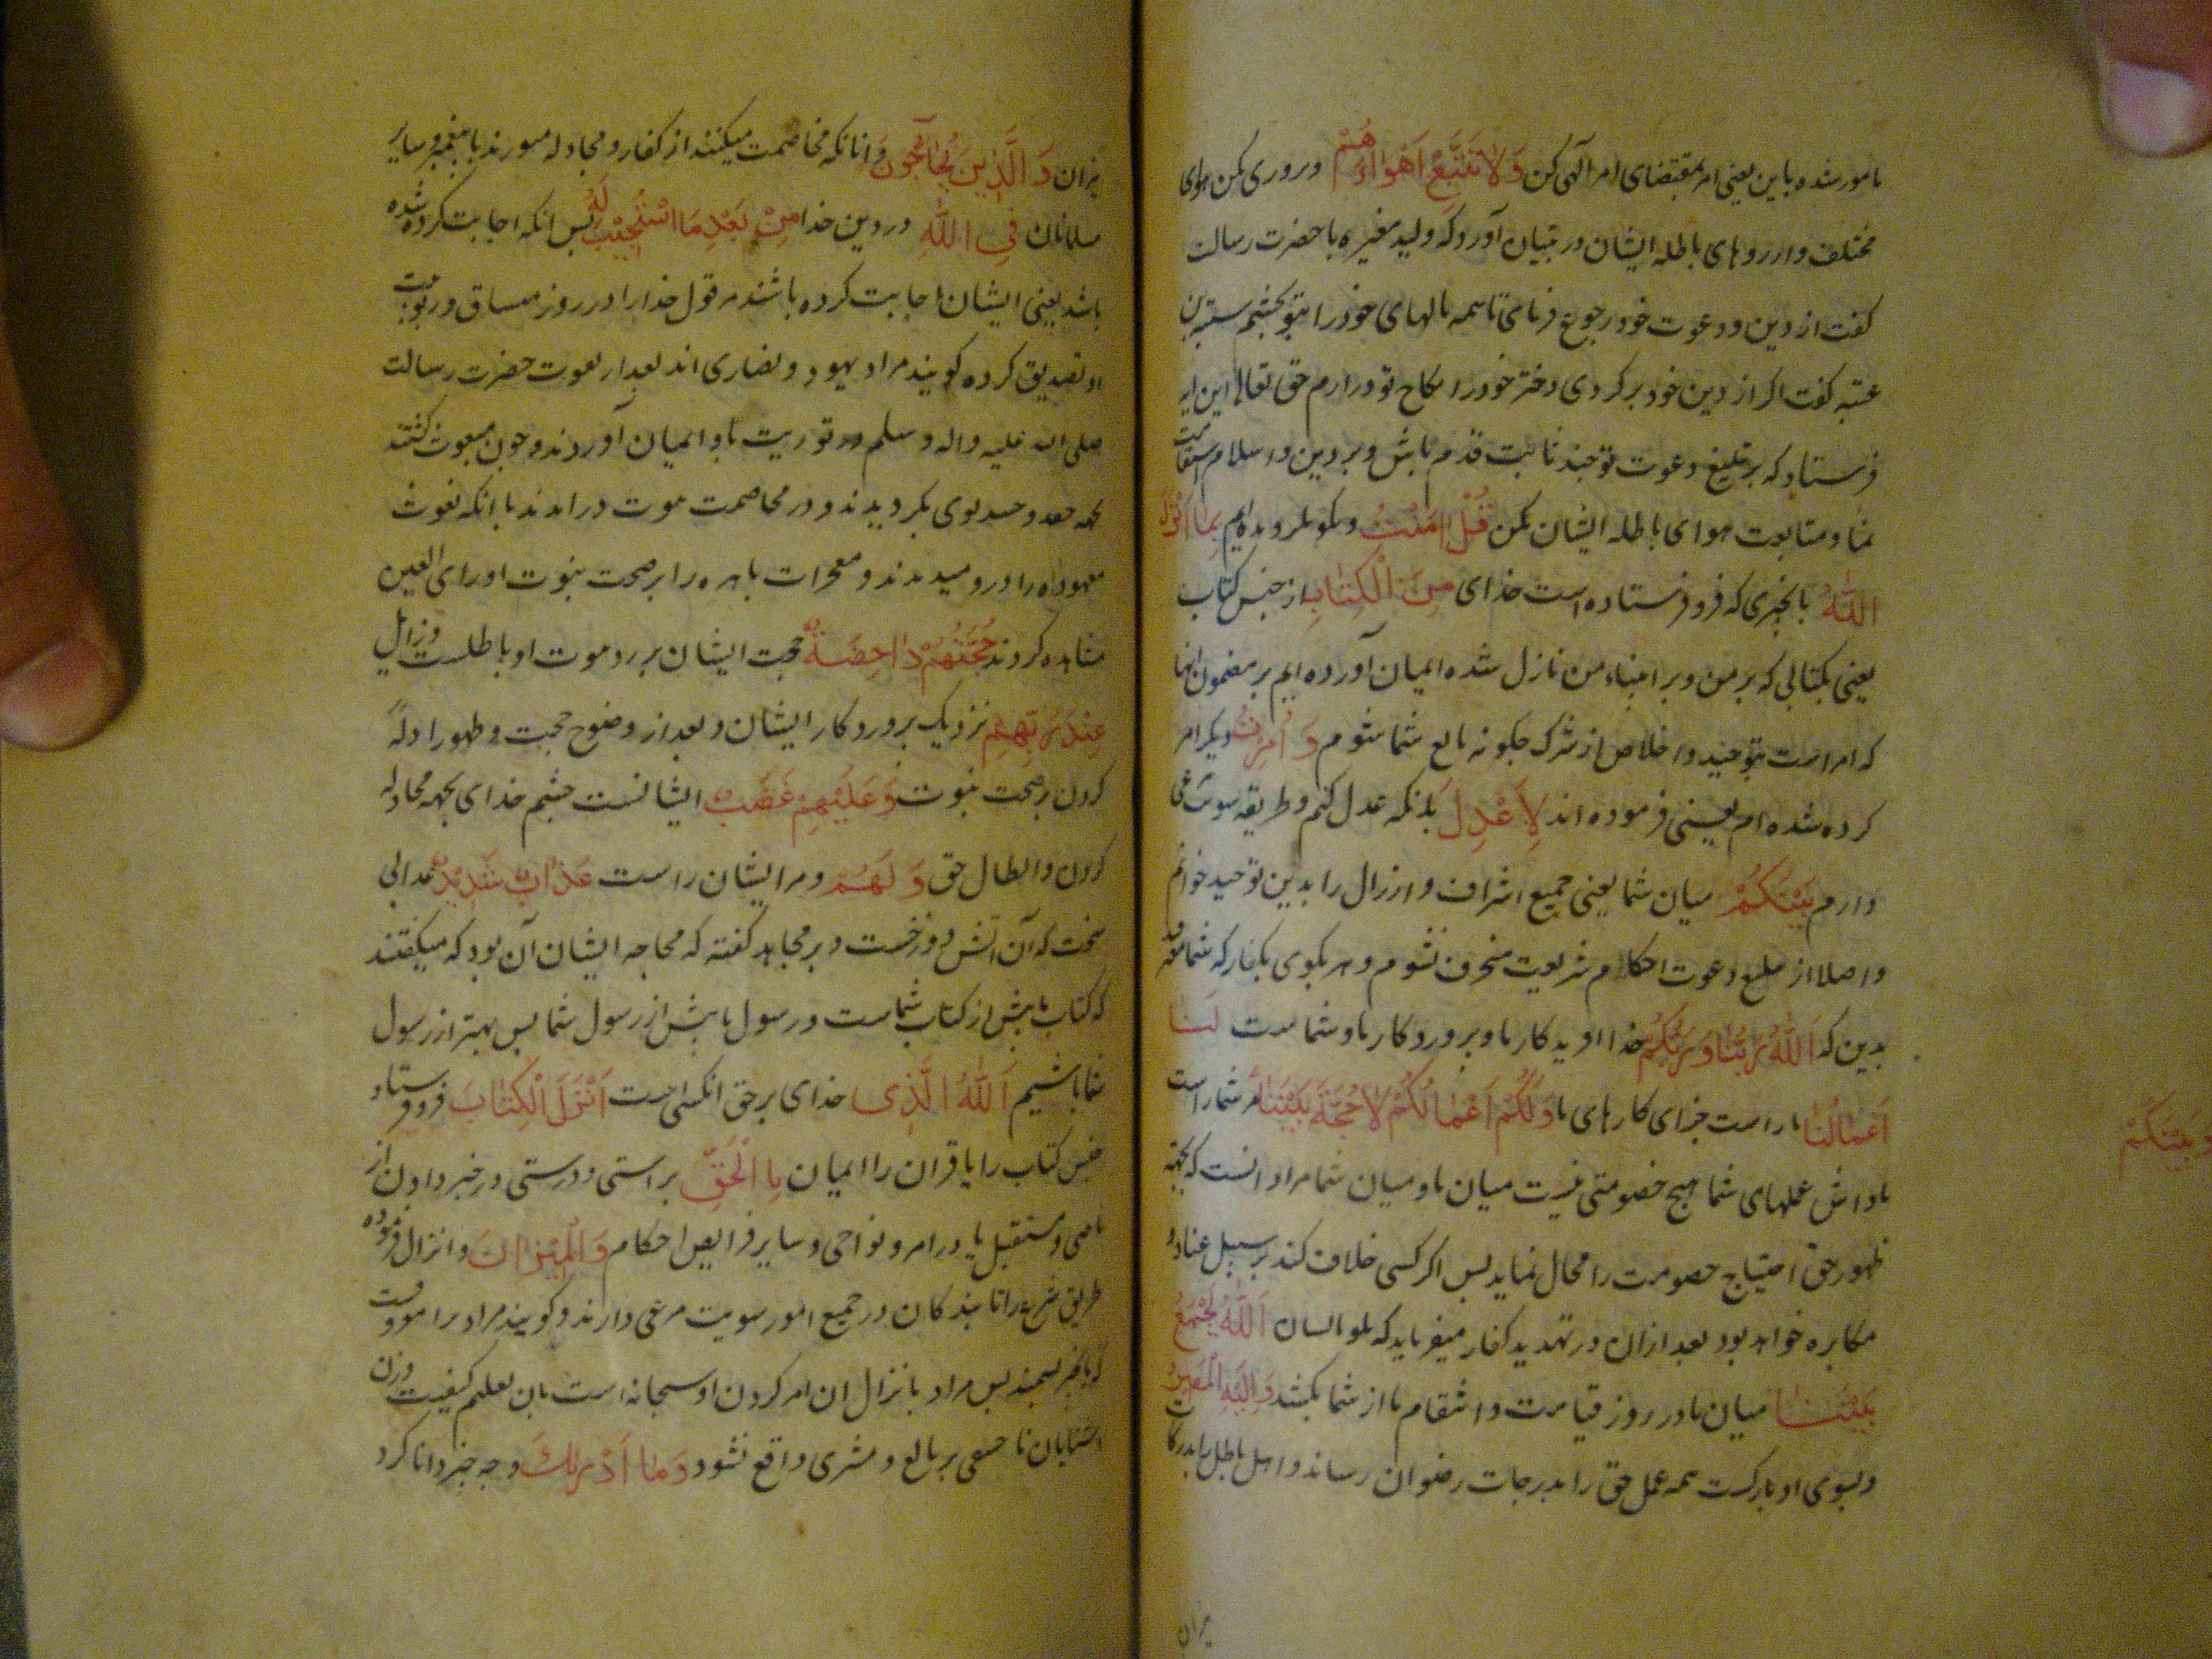 مامور شده باین یعنی امر بمقتضای امر الهی کن وَلَا تَتَّبِعْ اَهْوَاءَهُمْ و پروری مکن هوای
مختلف و ارزوهای باطله ایشان در تبیان آورد که ولید مغیره با حضرت رسالت
کفت از دین و دعوت خود رجوع فرمای تا همه مالهای خود را بتو بخشم
عتبه کفت اکر از دین خود برکردی دختر خود را نکاح تو درارم حق تعالی این ایه
فرستاد که بر تبلیغ دعوت توحید ثابت قدم باش و بر دین و اسلام استقامت
نما و متابعت هوای باطله ایشان مکن قُلْ اٰمَنْتُ و بکو بکرویده ایم بِمَا اَنْزَلَ
اللّٰهُ بانچیزی که فرو فرستاده است خدای مِنَ الْكِتَابِ از جنس کتاب
یعنی بکتابی که بر من و بر انبیاء من نازل شده ایمان آورده ایم بر مضمون انها
که امر است بتوحید و اخلاص از شرک چکونه تابع شما شوم وَ اُمِرْتُ و دیکر امر
کرده شده ام یعنی فرموده اند لِاَعْدِلَ بانکه عدل کنم و طریقه سویت مرعی
دارم بَيْنَكُمْ میان شما یعنی جمیع اشراف و ارزال را بدین توحید خوانم
و اصلا از تبلیغ دعوت احکام شریعت منحرف نشوم و بکوی بکفار که شما
بدین که اَللّٰهُ رَبُّنَا وَ رَبُّكُمْ خدا افریدکار ما و پروردکار ما و شماست لَنَا
اَعْمَالُنَا ماراست جزای کارهای ما وَلَكُمْ اَعْمَالُكُمْ لَا حُجَّةَ بَيْنَنَا مر شماراست
وَبَيْنَكُمْ
پاداش عملهای شما هیچ خصومتی نیست میان ما و میان شما مراد انست که بجهة
ظهور حق احتیاج خصومت را محال نماید پس اکر کسی خلاف کند بر سبیل عناد و
مکابره خواهد بود بعد ازان در تهدید کفار میفرماید که اَللّٰهُ يَجْمَعُ
بَيْنَنَا میان ما در روز قیامت و انتقام ما از شما بکشد وَاِلَيْهِ الْمَصِيرُ
و بسوی او بازکشت همه عمل حق را بدرجات رضوان رساند و اهل باطل را بدرکات
نیران
نیران وَ الَّذِينَ يُحَاجُّونَ و انانکه مخاصمت میکنند از کفار و مجادله میورزند با پیغمبر و سایر
مسلمانان فِي اللّٰهِ در دین خدا مِنْ بَعْدِ مَا اسْتُجِيبَ لَهُ پس انکه اجابت کرده شده
باشد یعنی ایشان اجابت کرده باشند مر قول خدا را در روز میثاق و ربوبیت
او تصدیق کرده کویند مراد یهود و نصاری اند بعد از نعوت حضرت رسالت
صلی الله علیه واله وسلم در توریت باو ایمان آوردند و چون مبعوث کشتند
بجهة حقد و حسد بوی نکرویدند و در مخاصمت در امدند با انکه نعوت
معهوده را در و میدیدند و معجزات باهره را بر صحت نبوت او رای العین
مشاهده کردند حُجَّتُهُمْ دَاحِضَةٌ حجت ایشان بر رد او باطلست و زایل
عِنْدَ رَبِّهِمْ نزدیک پروردکار ایشان و بعد از وضوح حجت و ظهور ادله
کردن بر صحت نبوت وَعَلَيْهِمْ غَضَبٌ ایشانست خشم خدای بجهة مجادله
کردن و ابطال حق وَلَهُمْ و مر ایشان راست عَذَابٌ شَدِيدٌ عذابی
سخت که آن اتش دوزخست و بر مجاهد کفته که محاجه ایشان آن بود که میکفتند
که کتاب ما پیش از کتاب شماست و رسول ما پیش از رسول شما پس بهتر از رسول
شما باشیم اَللّٰهُ الَّذِی خدای برحق انکسی است اَنْزَلَ الْكِتَابَ فرو فرستاد
جنس کتاب را یا قران را ایمان بِالْحَقِّ براستی و درستی در خبر دادن از
ماضی و مستقبل یا در امر و نواحی و سایر فرایض احکام وَالْمِيزَانَ و انزال فرموده
طریق شرع را تا بندکان در جمیع امور سویت مرعی دارند و کویند مراد
پس مراد بانزال ان امر کردن او سبحانه است بان تعلیم کیفیت وزن
تا حیفی بر بایع و مشتری واقع نشود وَمَا اَدْرٰيكَ و چه چیز دانا کرد